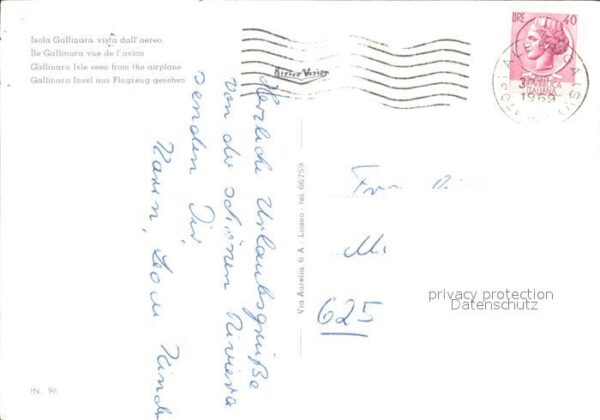 Isola Gallinara vista dall'aereo
Île Gallinara vue de l'avion
Gallinara Isle seen from the airplane
Gallinara Insel aus Flugzeug gesehen
LIRE 40
REPUBBLICA
ITALIANA
1969
Herzliche Urlaubsgrüße
von der schönen Riviera
senden Dir
Karin, Leo u. Kinder
Via Aurelia, 6 A - Loano - tel. 66759
M.
625
privacy protection
Datenschutz
IN. 96